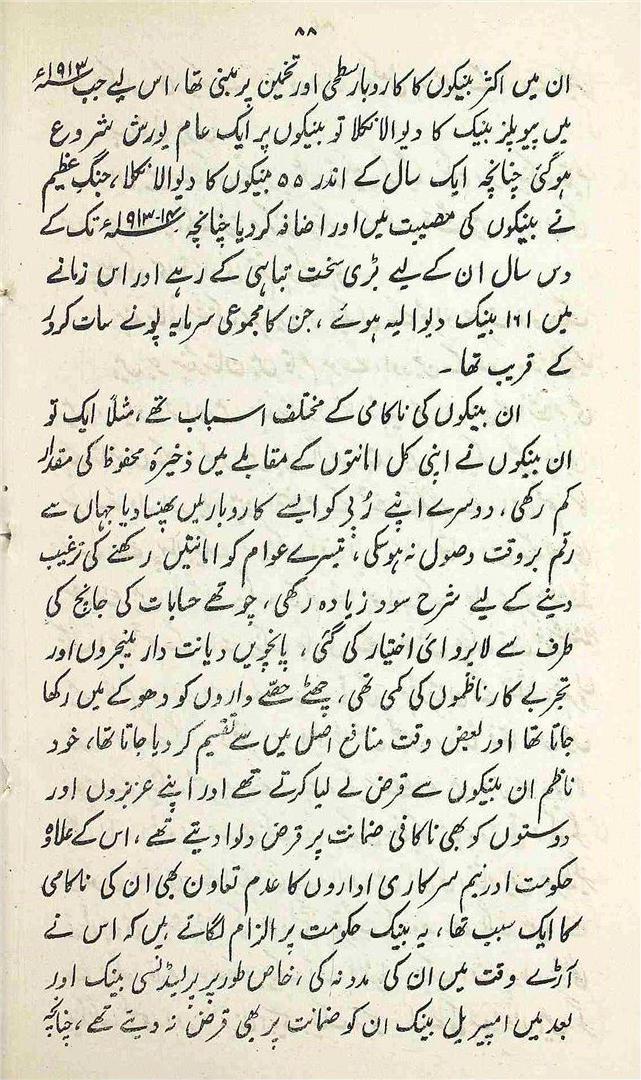 ۸۸
ان میں اکثر بینکوں کا کاروبار سطحی اور تخمین پر مبنی تھا، اس لیے جب ۱۹۱۳ء
میں پیوپلز بینک کا دیوالا نکلا تو بینکوں پر ایک عام یورش شروع
ہوگئی چنانچہ ایک سال کے اندر ۵۵ بینکوں کا دیوالا نکلا، جنگِ عظیم
نے بینکوں کی مصیبت میں اور اضافہ کردیا چنانچہ ۱۴-۱۹۱۳ء تک کے
دس سال ان کے لیے بڑی سخت تباہی کے رہے اور اس زمانے
میں ۱۶۱ بینک دیوالیہ ہوئے، جن کا مجموعی سرمایہ پونے سات کروڑ
کے قریب تھا۔
ان بینکوں کی ناکامی کے مختلف اسباب تھے، مثلاً ایک تو
ان بینکوں نے اپنی کل امانتوں کے مقابلے میں ذخیرۂ محفوظ کی مقدار
کم رکھی، دوسرے اپنے رُپی کو ایسے کاروبار میں پھنسا دیا جہاں سے
رقم بروقت وصول نہ ہوسکی، تیسرے عوام کو امانتیں رکھنے کی ترغیب
دینے کے لیے شرح سود زیادہ رکھی، چوتھے حسابات کی جانچ کی
طرف سے لاپروائی اختیار کی گئی، پانچویں دیانت دار مینجروں اور
تجربے کار ناظموں کی کمی تھی، چھٹے حصّے واروں کو دھوکے میں رکھا
جاتا تھا اور بعض وقت منافع اصل میں سے تقسیم کردیا جاتا تھا، خود
ناظم ان بینکوں سے قرض لے لیا کرتے تھے اور اپنے عزیزوں اور
دوستوں کو بھی ناکافی ضمانت پر قرض دلوا دیتے تھے، اس کے علاوہ
حکومت اور نیم سرکاری اداروں کا عدم تعاون بھی ان کی ناکامی
کا ایک سبب تھا، یہ بینک حکومت پر الزام لگاتے ہیں کہ اس نے
آڑے وقت میں ان کی مدد نہ کی، خاص طور پر پریسیڈنسی بینک اور
بعد میں امپیریل بینک ان کو ضمانت پر بھی قرض نہ دیتے تھے، چنانچہ